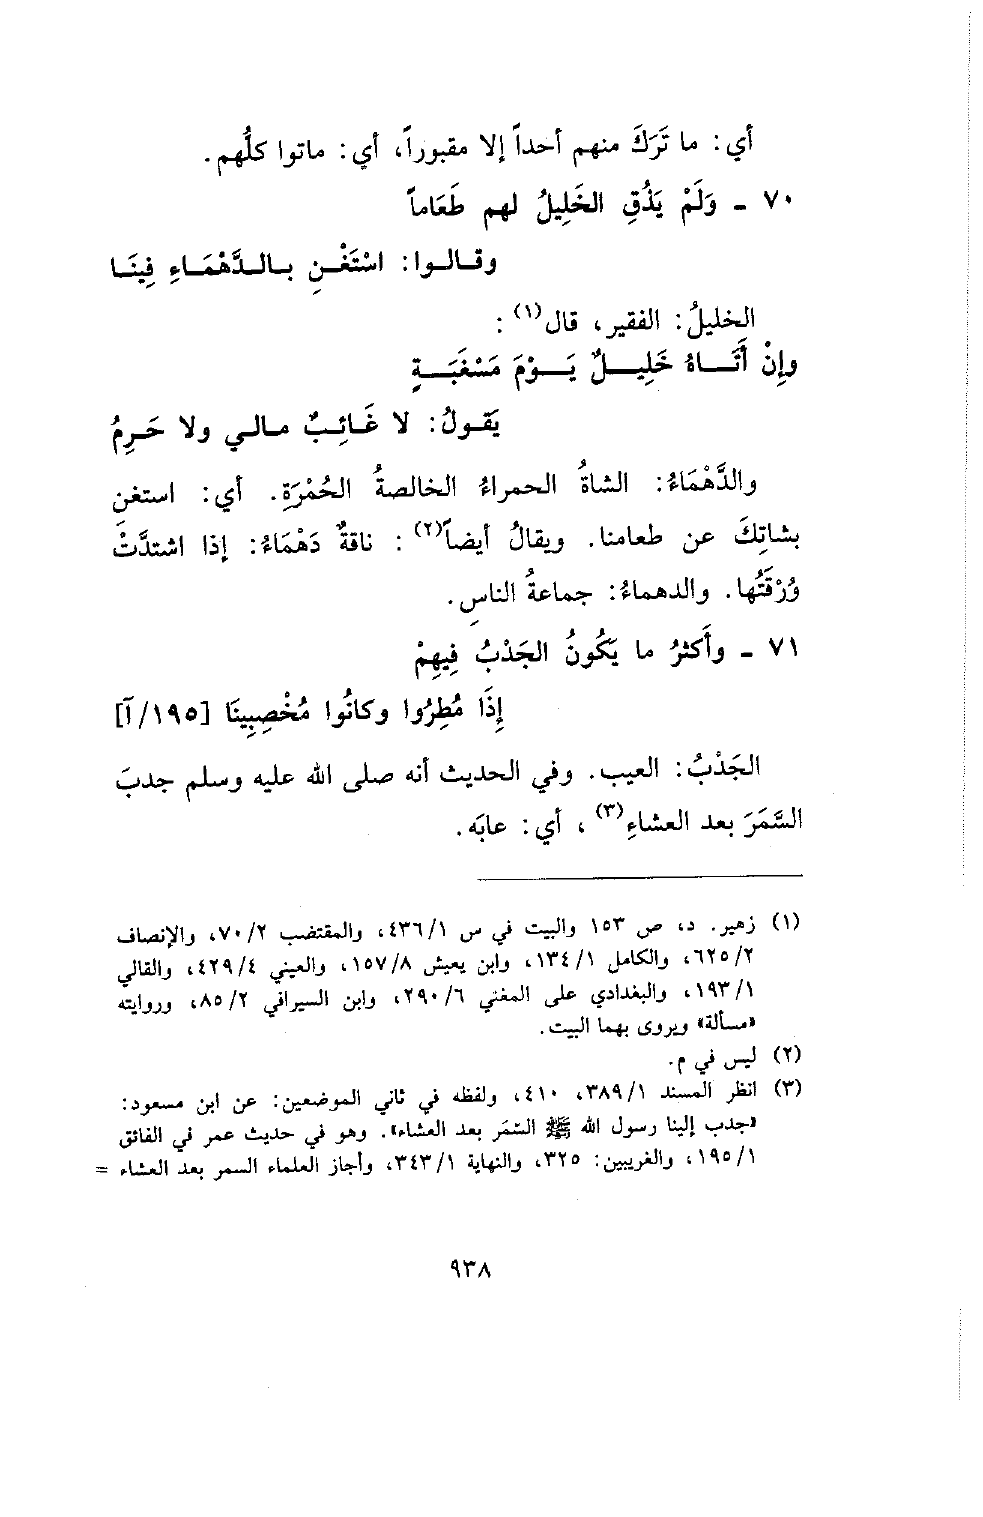 أي: ما تَرَكَ منهم أحداً إلا مقبوراً، أي: ماتوا كلُّهم.
٧٠ ـ وَلَمْ يَذُقِ الخَلِيلُ لهم طَعَاماً
وقـالـوا: اسْتَغْـنِ بـالـدَّهْمَـاءِ فِينَـا
الخليلُ: الفقير، قال(١) :
وإِنْ أَتَـــاهُ خَلِيـــلٌ يَـــوْمَ مَسْغَبَـــةٍ
يَقـولُ: لا غَـائِـبٌ مـالـي ولا حَـرِمُ
والدَّهْمَاءُ: الشاةُ الحمراءُ الخالصةُ الحُمْرَةِ. أي: استغنِ
بشاتِكَ عن طعامنا. ويقالُ أيضاً(٢) : ناقةٌ دَهْمَاءُ: إذا اشتدَّتْ
وُرْقَتُها. والدهماءُ: جماعةُ الناسِ.
٧١ ـ وأَكثرُ ما يَكُونُ الجَدْبُ فِيهِمْ
إِذَا مُطِرُوا وكانُوا مُخْصِبِينَا [١٩٥/آ]
الجَدْبُ: العيب. وفي الحديث أنه صلى الله عليه وسلم جدبَ
السَّمَرَ بعد العشاءِ(٣) ، أي: عابَه.
(١) زهير. د، ص ١٥٣ والبيت في س ٤٣٦/١، والمقتضب ٧٠/٢، والإنصاف
٦٢٥/٢، والكامل ١٣٤/١، وابن يعيش ١٥٧/٨، والعيني ٤٢٩/٤، والقالي
١٩٣/١، والبغدادي على المغني ٢٩٠/٦، وابن السيرافي ٨٥/٢، وروايته
«مسألة» ويروى بهما البيت.
(٢) ليس في م.
(٣) انظر المسند ٣٨٩/١، ٤١٠، ولفظه في ثاني الموضعين: عن ابن مسعود:
«جدب إلينا رسول الله ﷺ السَّمَر بعد العشاء». وهو في حديث عمر في الفائق
١٩٥/١، والغريبين: ٣٢٥، والنهاية ٣٤٣/١، وأجاز العلماء السمر بعد العشاء =
٩٣٨